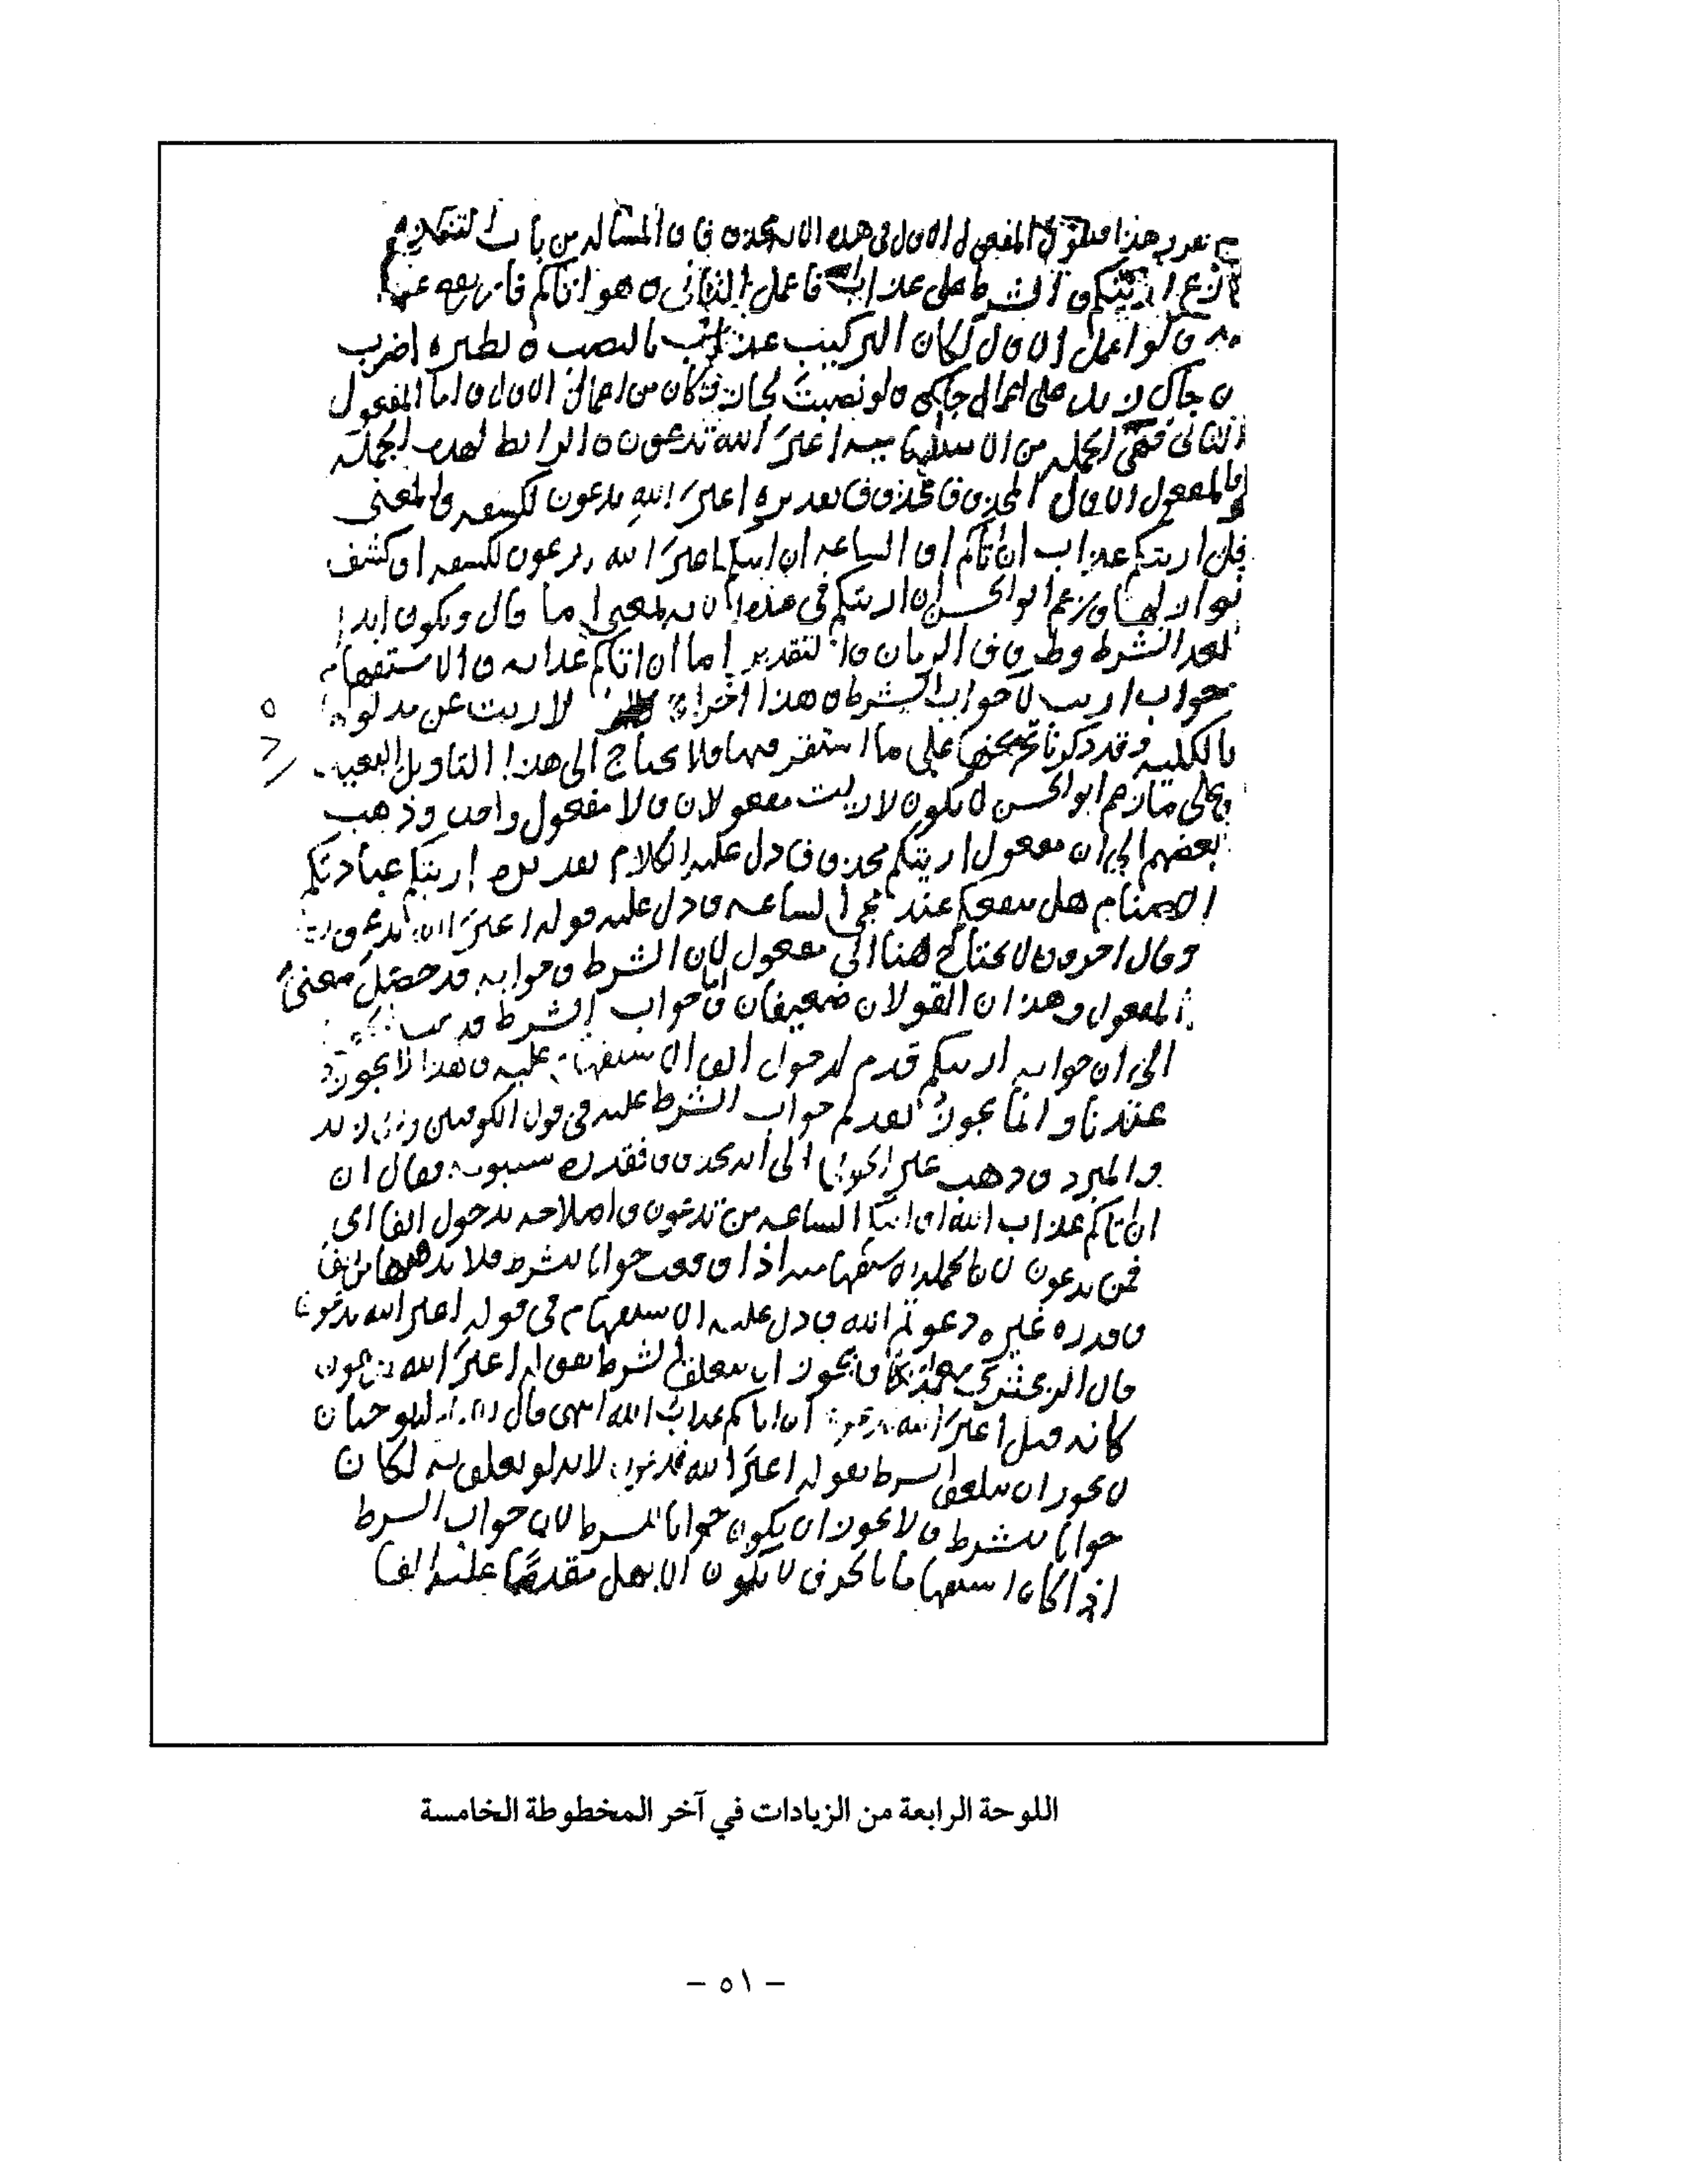 تقرر هذا فنقول المفعول الاول في هذه الايه محذوف والمساله من باب التنازع
تنازع اريتكم والشرط على عذاب الله فاعمل الثاني وهو اتاكم فارتفع عذاب
به ولو اعمل الاول لكان التركيب عذاب بالنصب ونظيره اضرب
ان جاك زيد على اعمال جاك ولو نصبت لجاز وكان من اعمال الاول واما المفعول
الثاني فهي الجمله من الاستفهاميه اغير الله تدعون والرابط لهذه الجمله
بالمفعول الاول المحذوف محذوف تقديره اغير الله تدعون لكشفه والمعنى
قل اريتكم عذاب الله ان اتاكم او الساعه ان اتتكم اغير الله تدعون لكشفه او كشف
نوازلها وزعم ابو الحسن ان اريتكم في هذه الايه بمعنى اما قال ويكون ابدا
بعد الشرط وظروف الزمان والتقدير اما ان اتاكم عذابه والاستفهام
جواب اريت لا جواب الشرط وهذا اخراج لاريت عن مدلولها
بالكليه وقد ذكرنا تخريجها على ما استقر فيها فلا يحتاج الى هذا التاويل البعيد
وعلى ما زعم ابو الحسن لا يكون لاريت مفعولان ولا مفعول واحد وذهب
بعضهم الى ان مفعول اريتكم محذوف دل عليه الكلام تقديره اريتكم عبادتكم
الاصنام هل تنفعكم عند مجي الساعه ودل عليه قوله اغير الله تدعون
وقال اخرون لا يحتاج هنا الى مفعول لان الشرط وجوابه قد حصل معنى
المفعول وهذان القولان ضعيفان واما جواب الشرط فذهب
الى ان جوابه اريتكم قدم لدخول الف الاستفهام عليه وهذا لا يجوز
عندنا وانما يجوز تقديم جواب الشرط عليه في قول الكوفيين وابي زيد
والمبرد وذهب غير الحوفي الى انه محذوف فقدره سيبويه فقال ان
ان اتاكم عذاب الله او اتتكم الساعه من تدعون واصلاحه بدخول الفا اي
فمن تدعون لان الجمله الاستفهاميه اذا وقعت جوابا للشرط فلا بد فيها من الفا
وقدره غيره دعوتم الله ودل عليه الاستفهام في قوله اغير الله تدعون
قال الزمخشري ويجوز ان يتعلق الشرط بقوله اغير الله تدعون
كانه قيل اغير الله تدعون ان اتاكم عذاب الله انتهى قال ابو حيان
لا يجوز ان يتعلق الشرط بقوله اغير الله تدعون لانه لو تعلق به لكان
جوابا للشرط ولا يجوز ان يكون جوابا للشرط لان جواب الشرط
اذا كان استفهاما بالحرف لا يكون الا بهل مقدما عليه الفا
٥
اللوحة الرابعة من الزيادات في آخر المخطوطة الخامسة
- ٥١ -